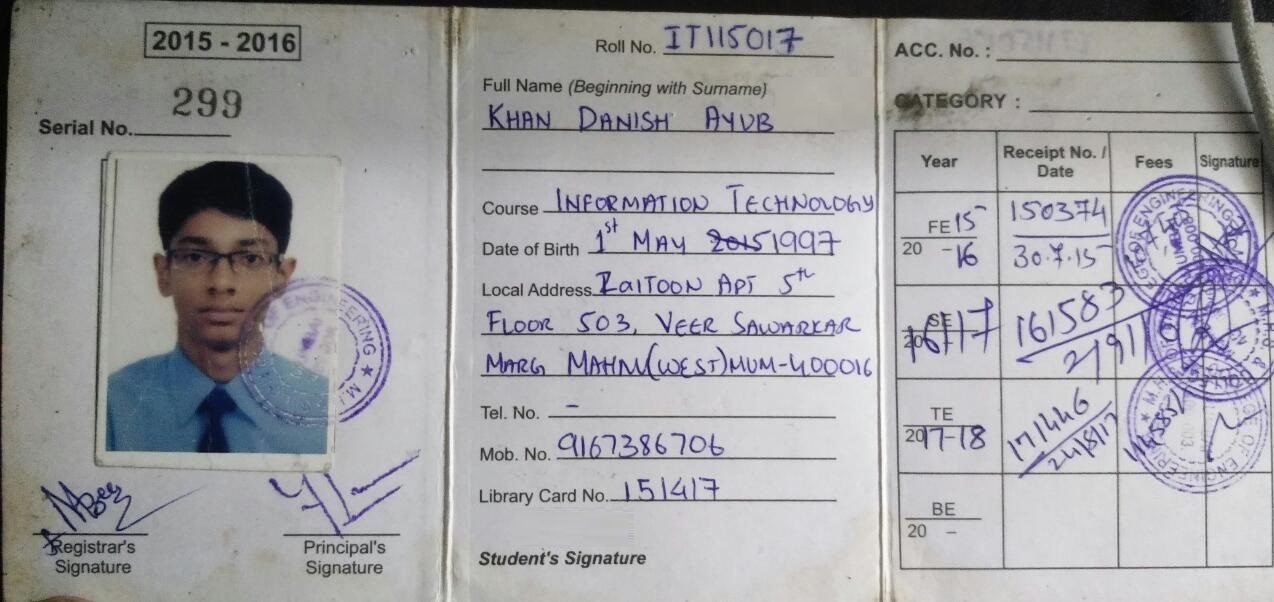 2015 - 2016
Serial No. 299
Registrar's
Signature
Principal's
Signature
Roll No. IT115017
Full Name (Beginning with Surname)
KHAN DANISH AYUB
Course INFORMATION TECHNOLOGY
Date of Birth 1st MAY 1997
Local Address ZAITOON APT 5th
FLOOR 503, VEER SAWARKAR
MARG MAHIM(WEST)MUM-400016
Tel. No. -
Mob. No. 9167386706
Library Card No. 151417
Student's Signature
ACC. No. :
CATEGORY :
Year Receipt No. / Date Fees Signature
FE 2015-16 150374 30.7.15
SE 2016-17 161583
TE 2017-18 171446
BE 20 -